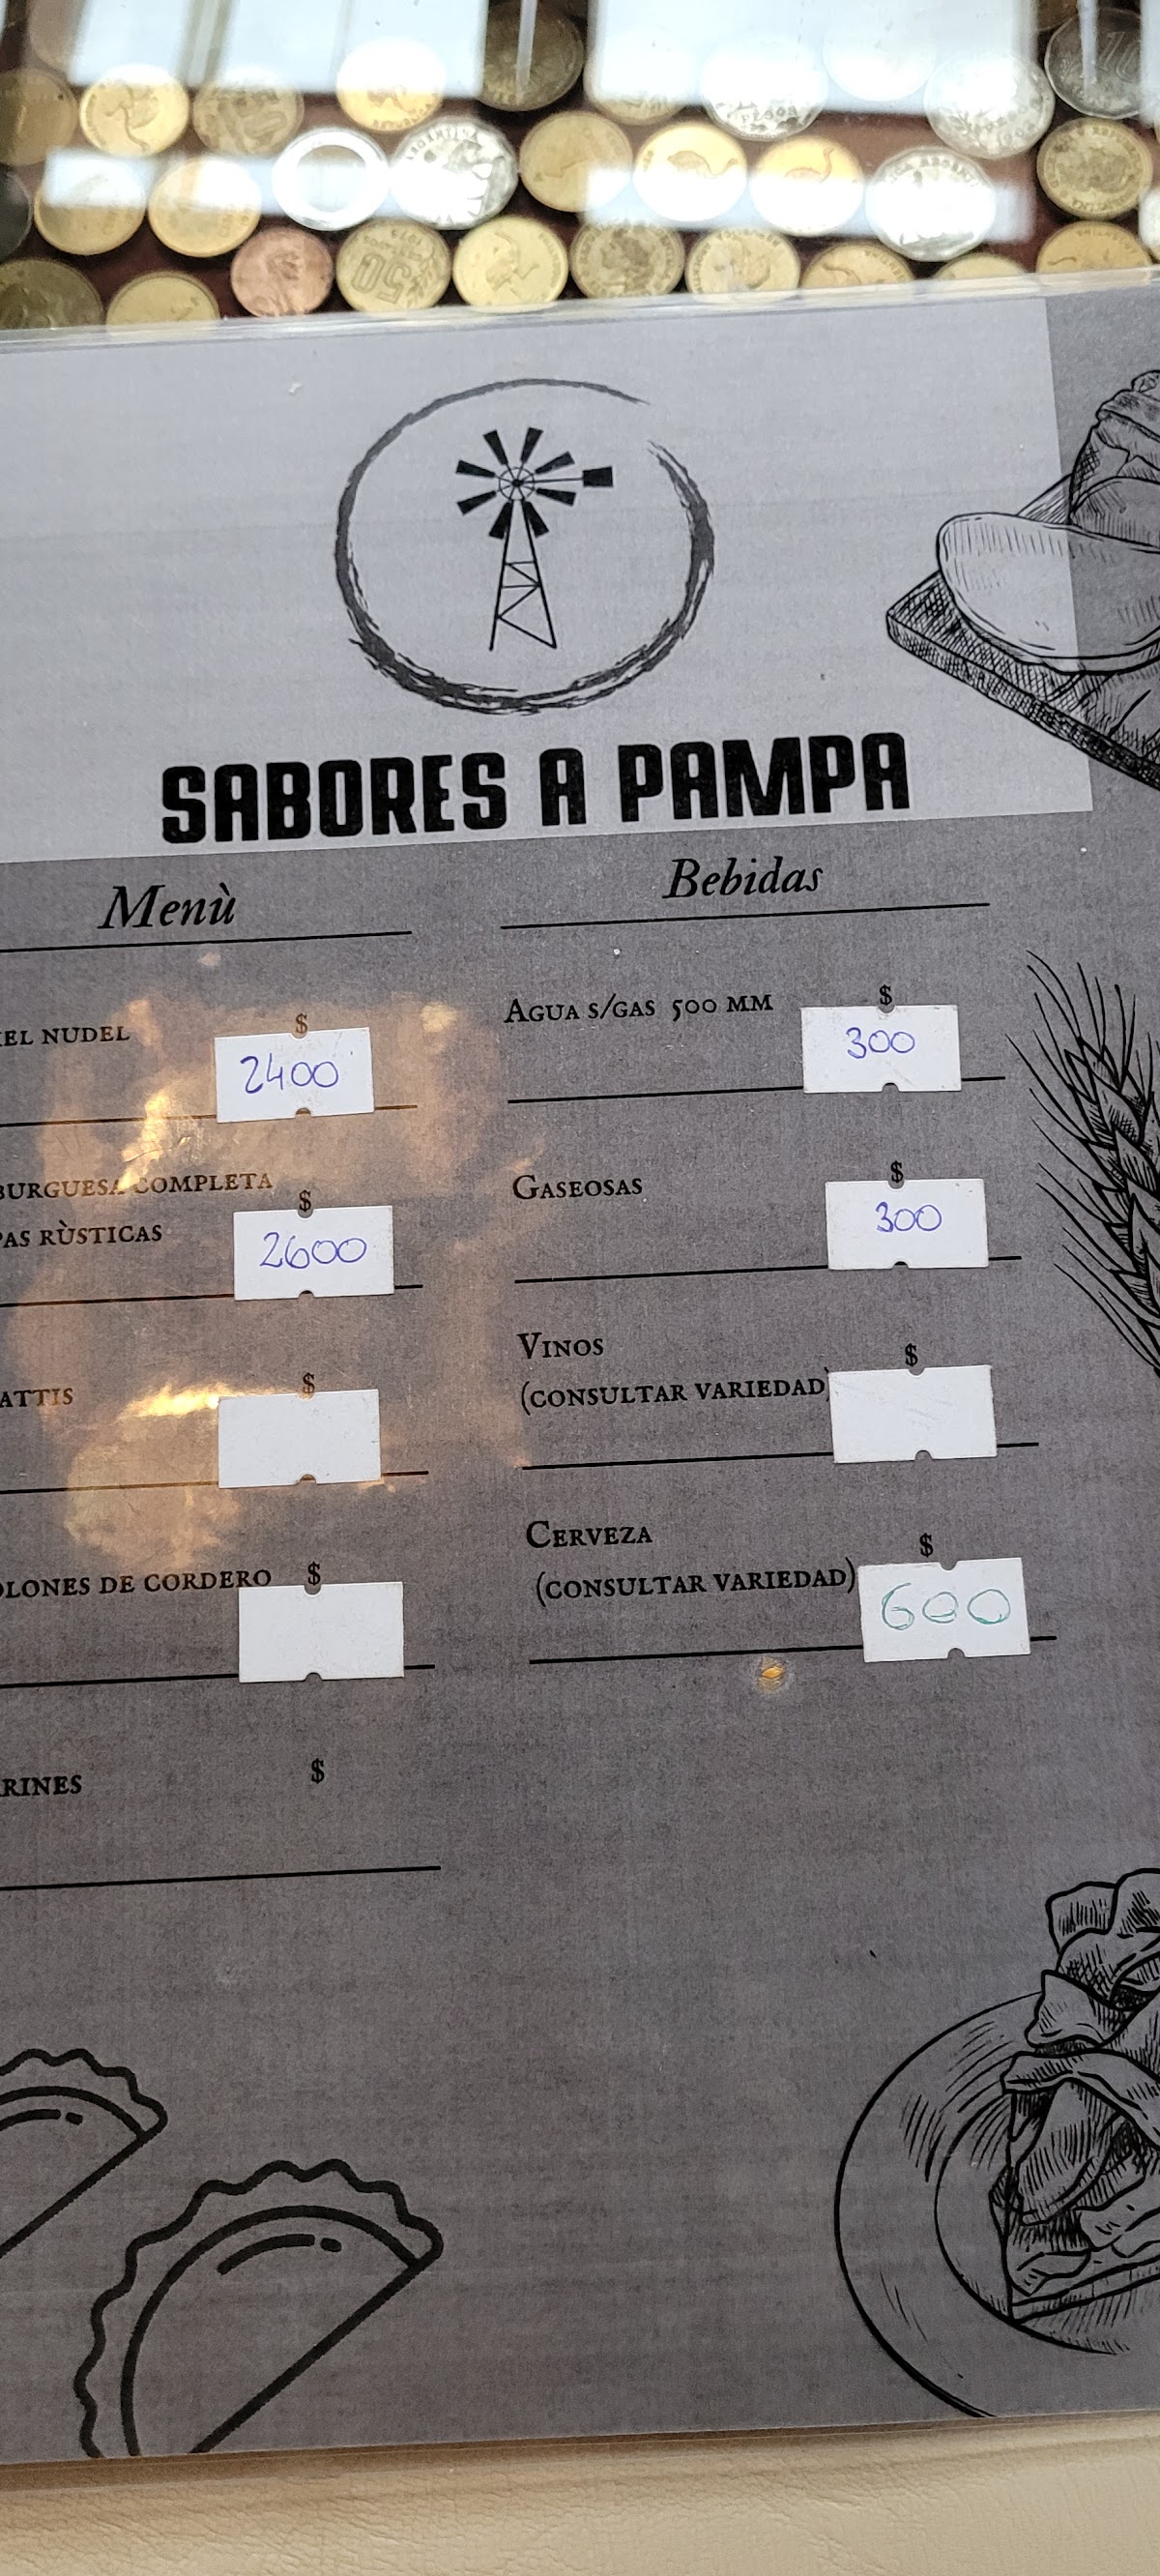 SABORES A PAMPA
Menù
EL NUDEL
$
2400
BURGUESA COMPLETA
PAS RÙSTICAS
$
2600
ATTIS
$
OLONES DE CORDERO
$
RINES
$
Bebidas
AGUA S/GAS 500 MM
$
300
GASEOSAS
$
300
VINOS
(CONSULTAR VARIEDAD)
$
CERVEZA
(CONSULTAR VARIEDAD)
$
600
50